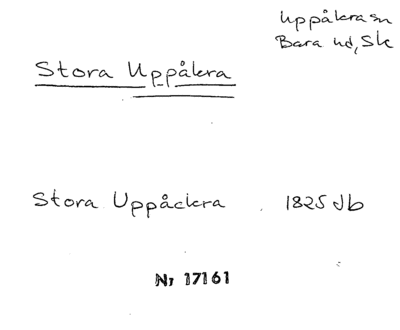 Uppåkra sn
Bara hd, Sk
Stora Uppåkra
Stora Uppåckra 1825 Jb
Nr 17161